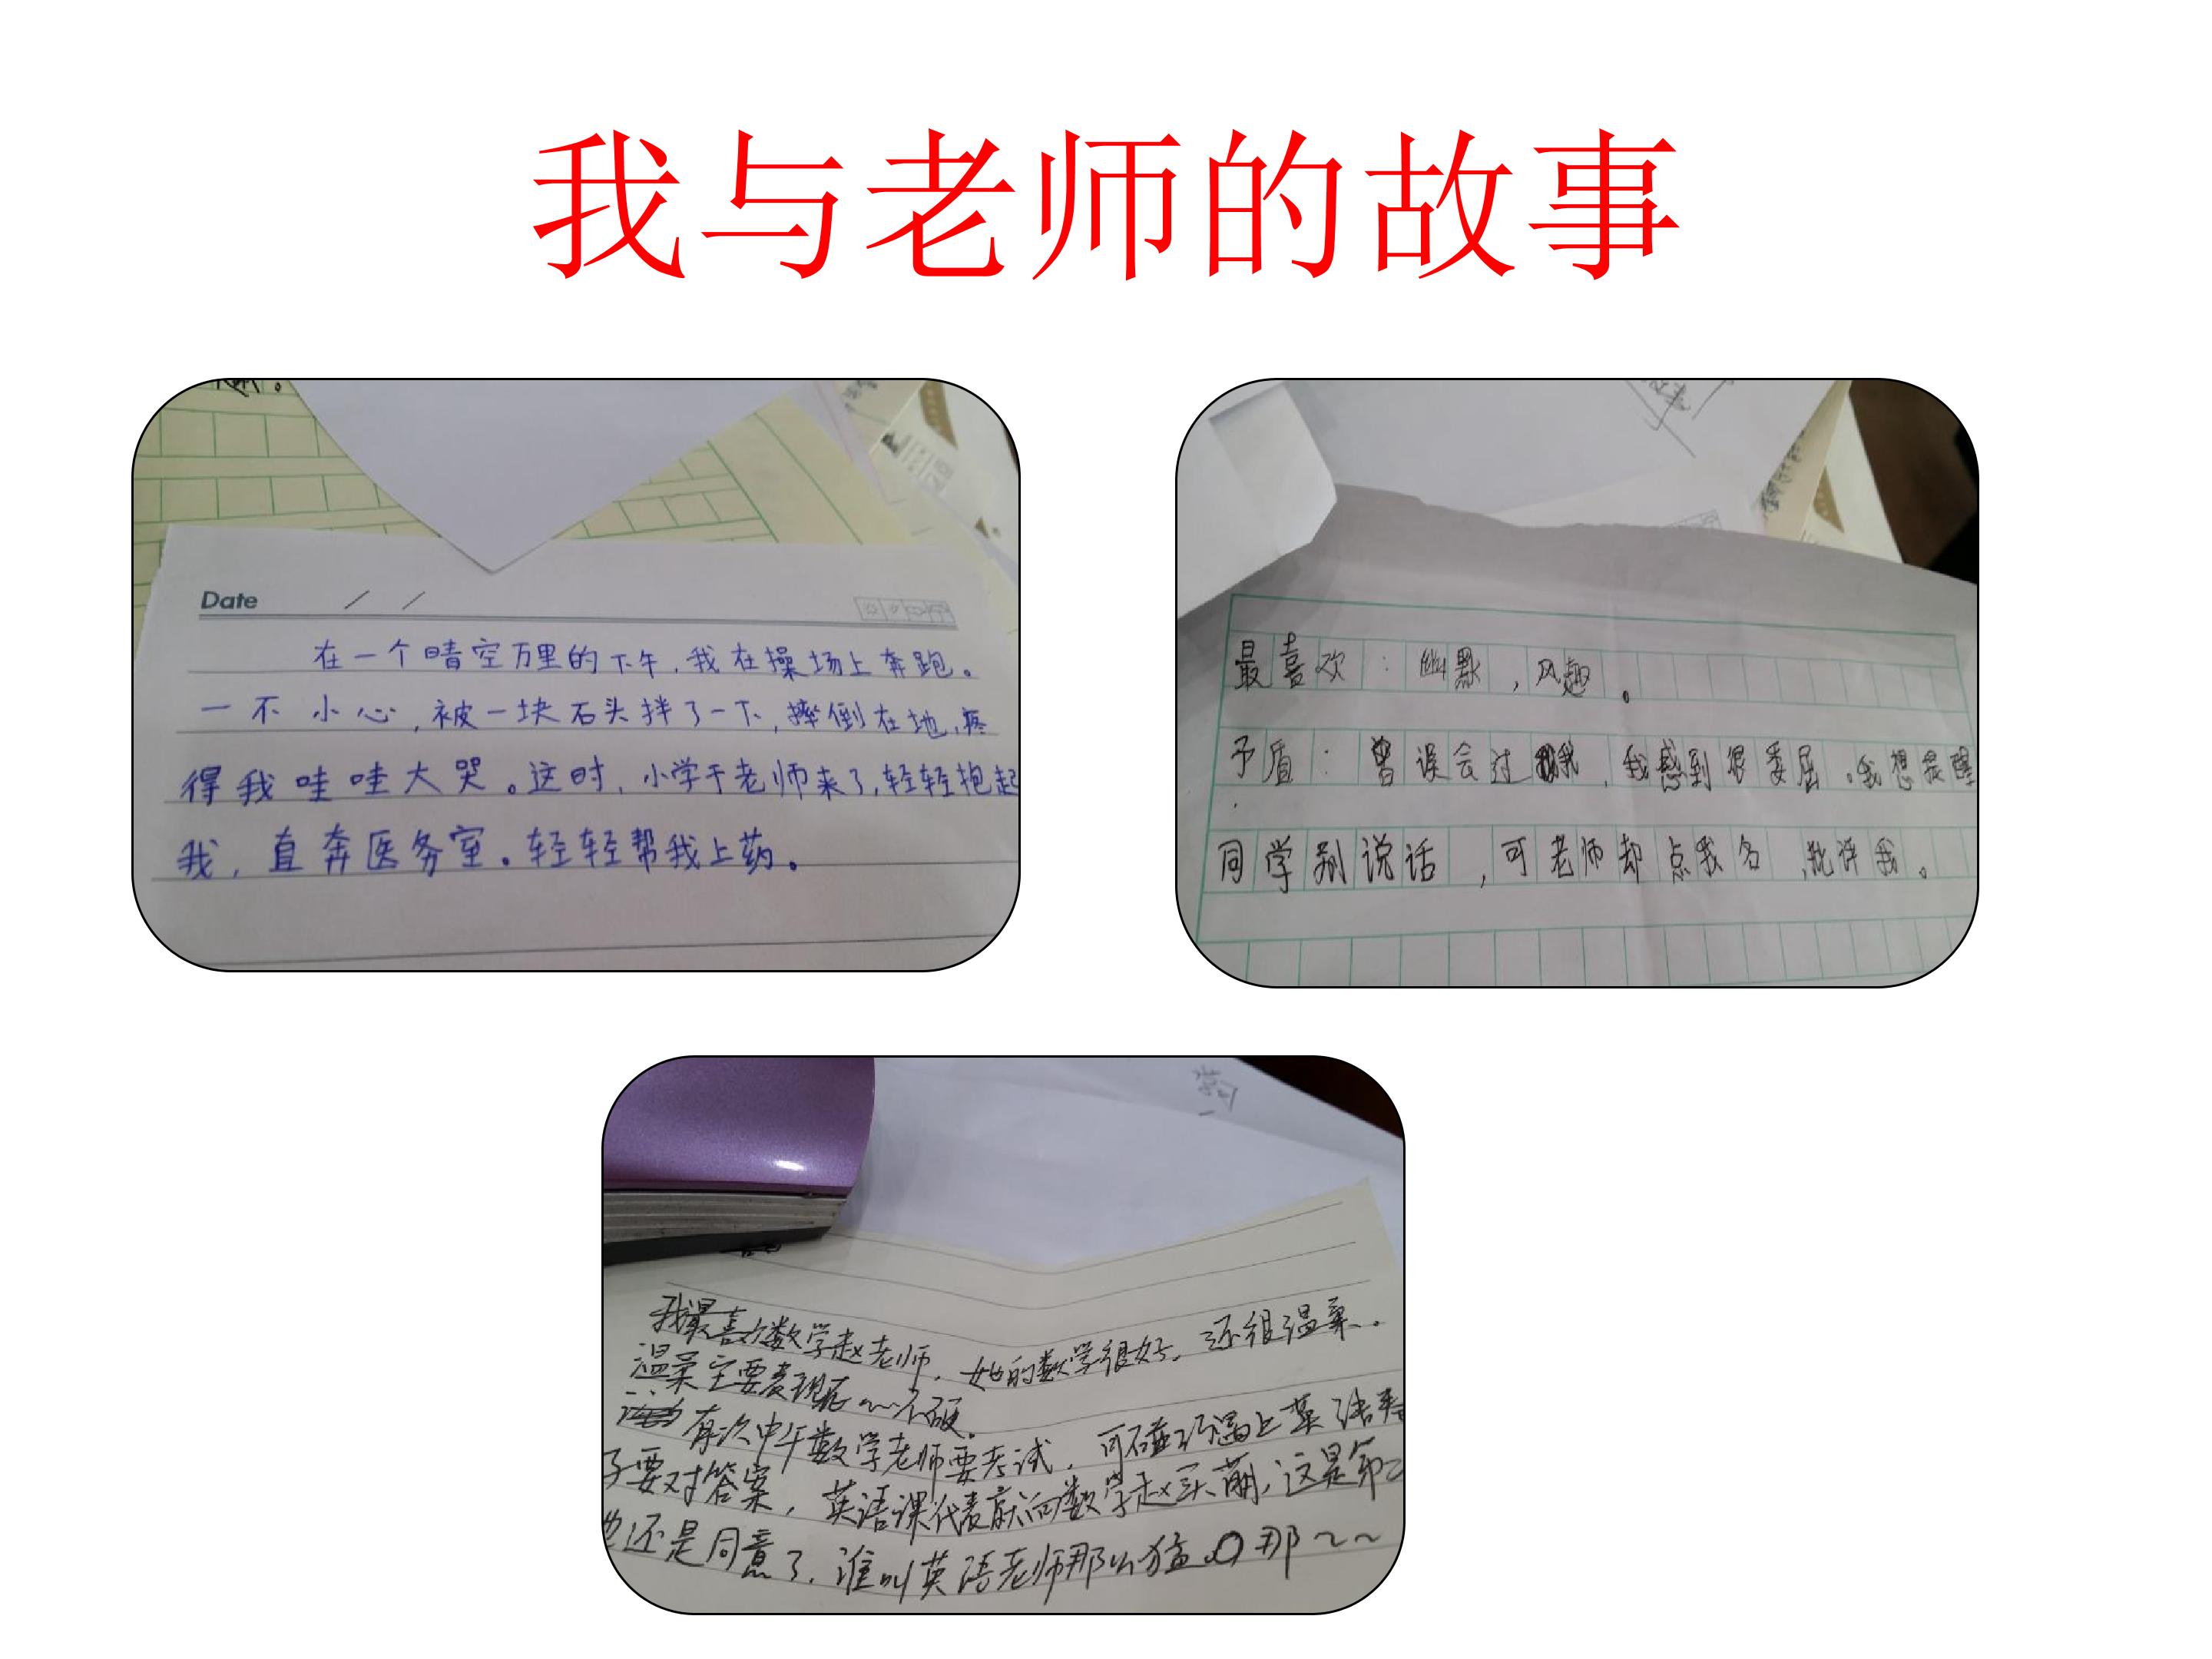 我与老师的故事
Date / /
在一个晴空万里的下午,我在操场上奔跑。
一不小心,被一块石头拌了一下,摔倒在地,疼
得我哇哇大哭。这时,小学于老师来了,轻轻抱起
我,直奔医务室。轻轻帮我上药。
最喜欢:幽默,风趣。
矛盾:曾误会过我,我感到很委屈。我想提醒
同学别说话,可老师却点我名,批评我。
我最喜欢数学赵老师,她的数学很好,还很温柔。
温柔主要表现在~不硬。
有次中午数学老师要考试,可碰巧遇上英语
要对答案,英语课代表就向数学赵,这是第
还是同意了,谁叫英语老师那么猛。那~~